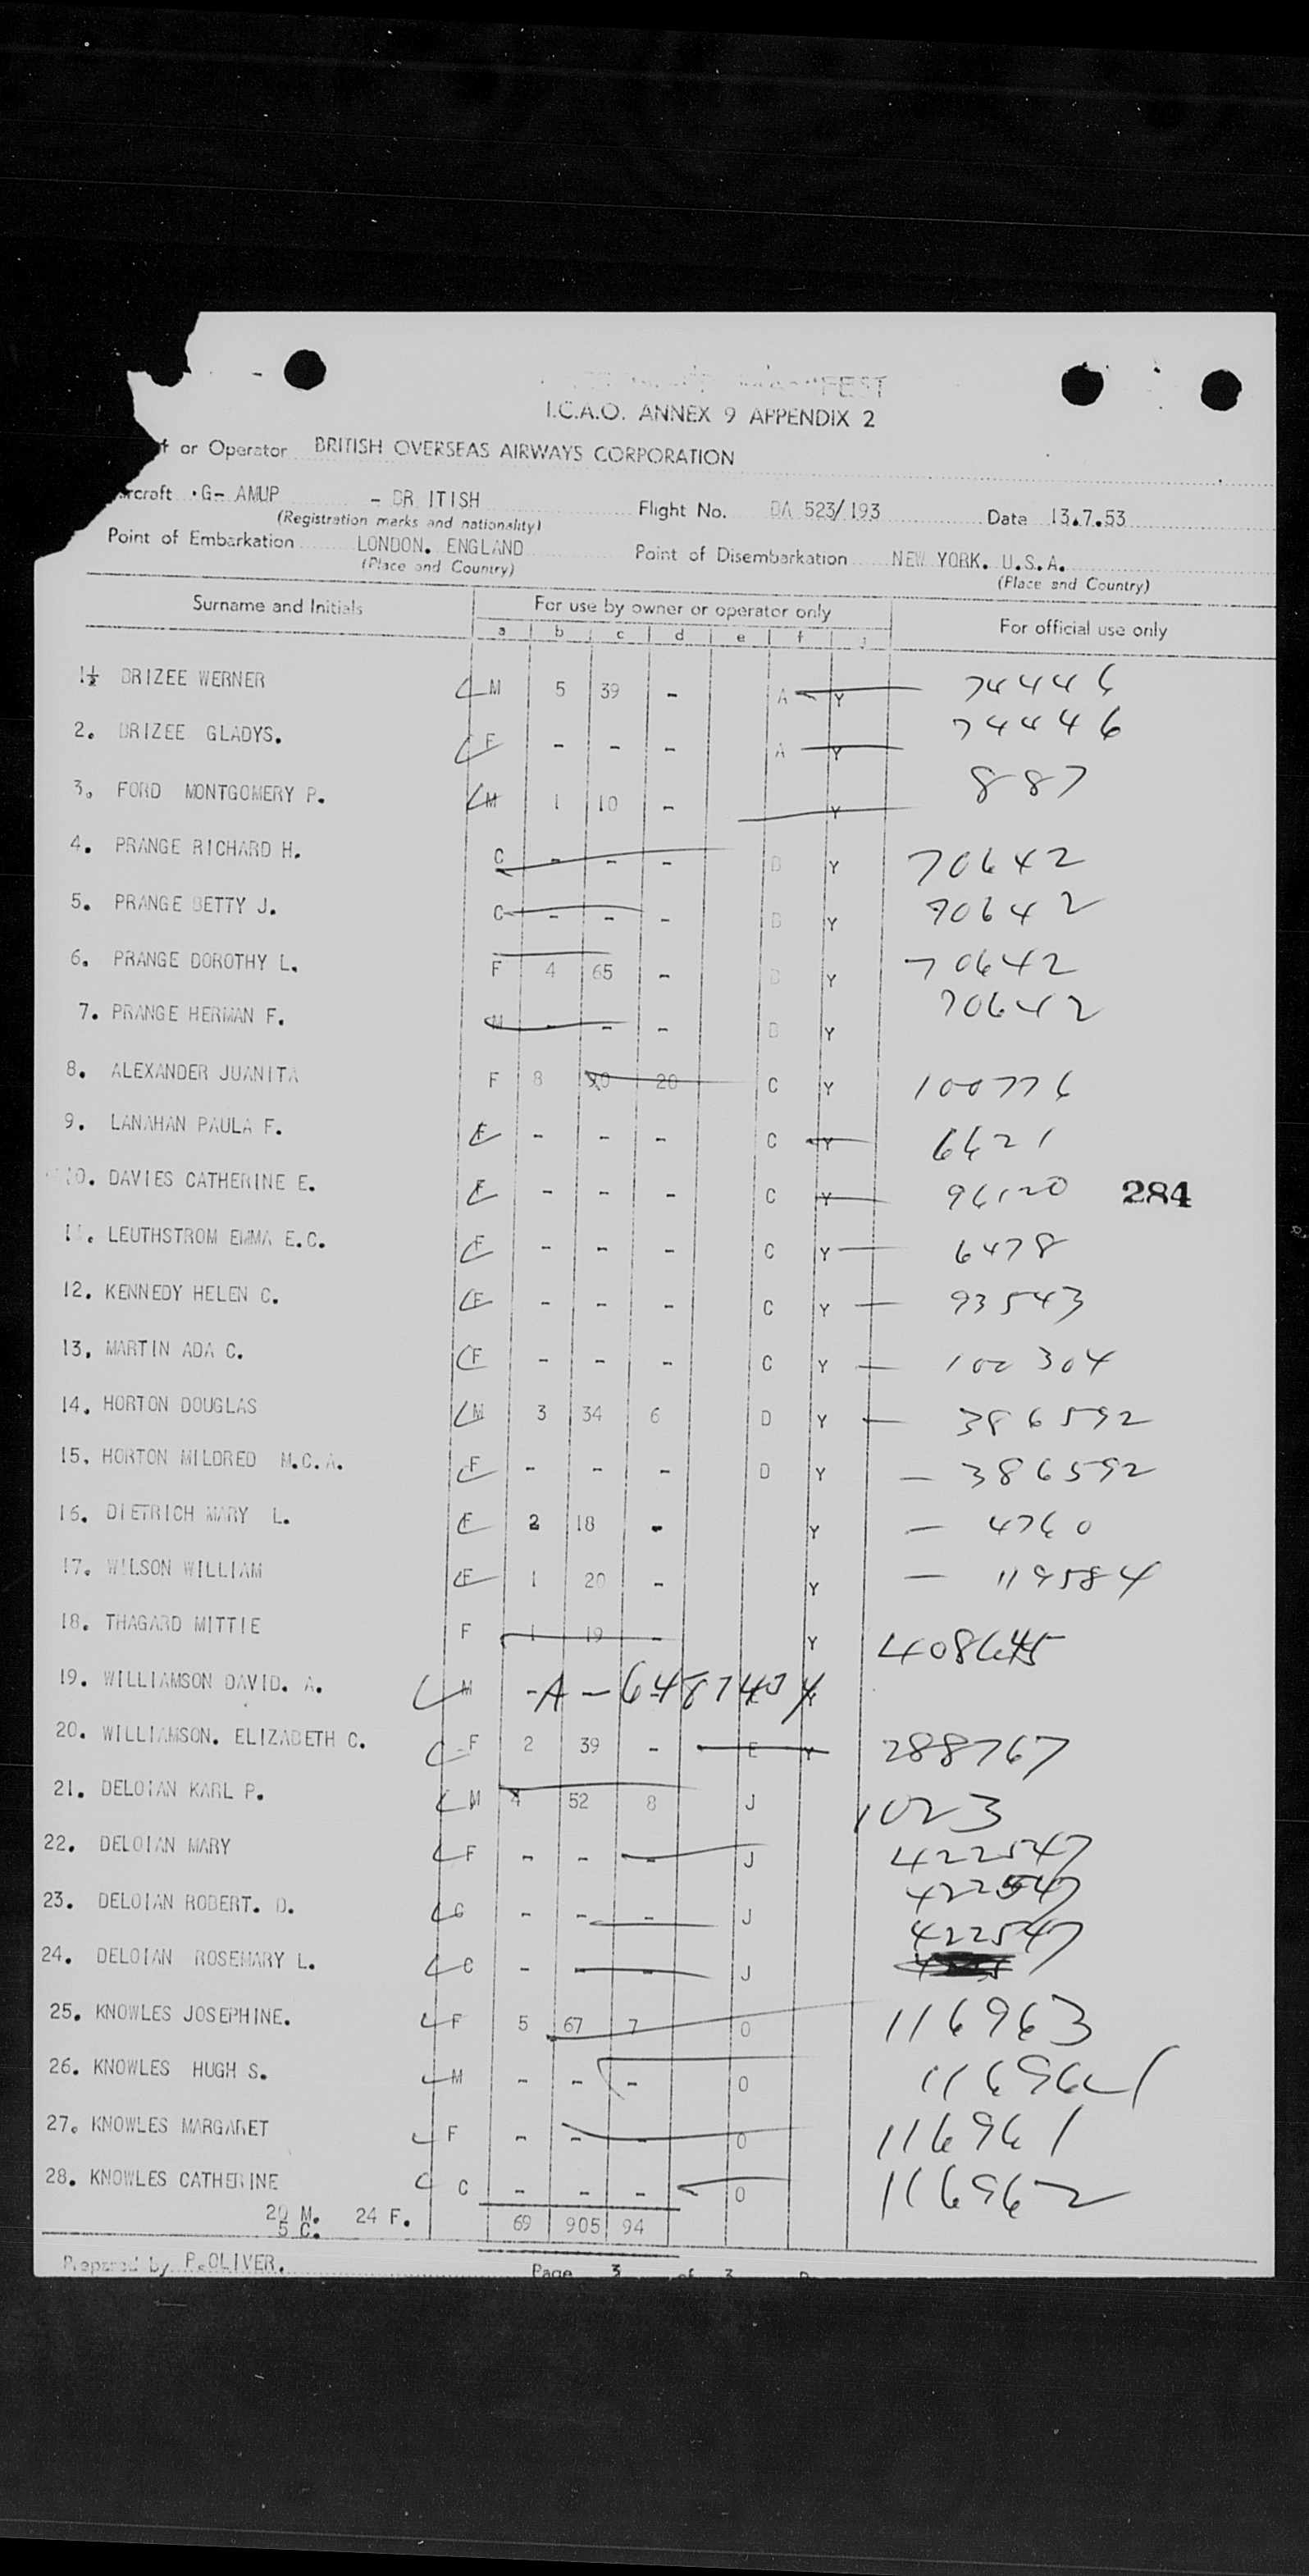 FEST
I.C.A.O. ANNEX 9 APPENDIX 2
or Operator BRITISH OVERSEAS AIRWAYS CORPORATION
rcraft G- AMUP - BR ITISH Flight No. BA 523/193 Date 13.7.53
(Registration marks and nationality)
Point of Embarkation LONDON. ENGLAND Point of Disembarkation NEW YORK. U.S.A.
(Place and Country) (Place and Country)
Surname and Initials For use by owner or operator only For official use only
a b c d e f
1 BRIZEE WERNER M 5 39 - A Y 74446
2. BRIZEE GLADYS. F - - - A Y 74446
3. FORD MONTGOMERY P. M 1 10 - Y 887
4. PRANGE RICHARD H. C - - - B Y 70642
5. PRANGE BETTY J. C - - - B Y 70642
6. PRANGE DOROTHY L. F 4 65 - B Y 70642
7. PRANGE HERMAN F. M - - - B Y 70642
8. ALEXANDER JUANITA F 8 90 20 C Y 100776
9. LANAHAN PAULA F. F - - - C Y 6621
10. DAVIES CATHERINE E. F - - - C Y 96120 284
11. LEUTHSTROM EMMA E.C. F - - - C Y 6478
12. KENNEDY HELEN C. F - - - C Y - 93543
13. MARTIN ADA C. F - - - C Y - 100304
14. HORTON DOUGLAS M 3 34 6 D Y - 386592
15. HORTON MILDRED M.C.A. F - - - D Y - 386592
16. DIETRICH MARY L. F 2 18 - Y - 4760
17. WILSON WILLIAM F 1 20 - Y - 119584
18. THAGARD MITTIE F 1 19 - Y 408645
19. WILLIAMSON DAVID. A. M -A-6487404 Y
20. WILLIAMSON. ELIZABETH C. F 2 39 - E Y 288767
21. DELOIAN KARL P. M 4 52 8 J 1023
22. DELOIAN MARY F - - - J 422547
23. DELOIAN ROBERT. D. C - - - J 422547
24. DELOIAN ROSEMARY L. C - - - J 422547
25. KNOWLES JOSEPHINE. F 5 67 7 O 116963
26. KNOWLES HUGH S. M - - - O
27. KNOWLES MARGARET F - - - O 116961
28. KNOWLES CATHERINE C - - - O 116962
20 M. 24 F. 69 905 94
5 C.
Prepared by P.OLIVER. Page 3 of 3